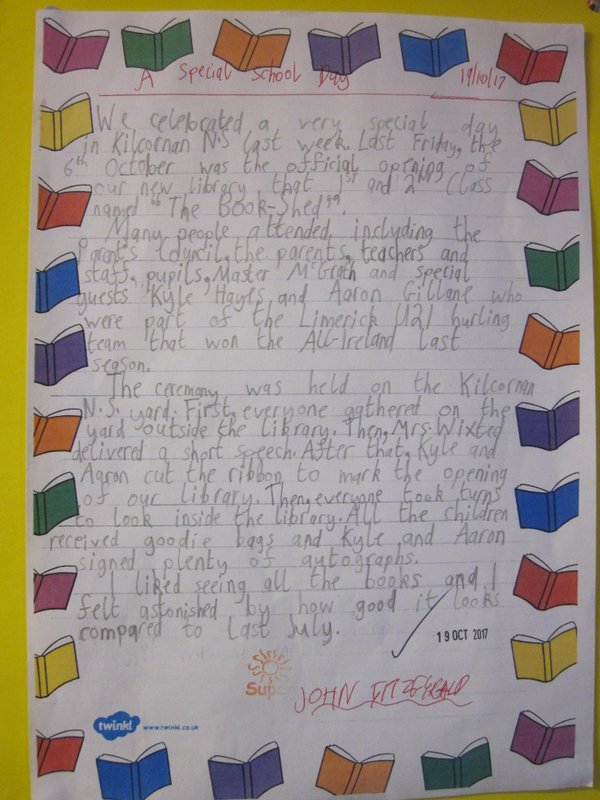 A Special School Day 19/10/17
We celebrated a very special day
in Kilcornan N.S last week. Last Friday, the
6th October was the official opening of
our new library that 1st and 2nd Class
named "The Book-Shed".
Many people attended, including the
Parent's Council, the parents, teachers and
staff, pupils, Master McGrath and special
guests Kyle Hayes and Aaron Gillane who
were part of the Limerick U21 hurling
team that won the All-Ireland last
season.
The ceremony was held on the Kilcornan
N.S. yard. First, everyone gathered on the
yard outside the library. Then, Mrs. Wixted
delivered a short speech. After that, Kyle and
Aaron cut the ribbon to mark the opening
of our library. Then, everyone took turns
to look inside the library. All the children
received goodie bags and Kyle and Aaron
signed plenty of autographs.
I liked seeing all the books and I
felt astonished by how good it looks
compared to last July.
19 OCT 2017
Super
JOHN FITZGERALD
twinkl www.twinkl.co.uk